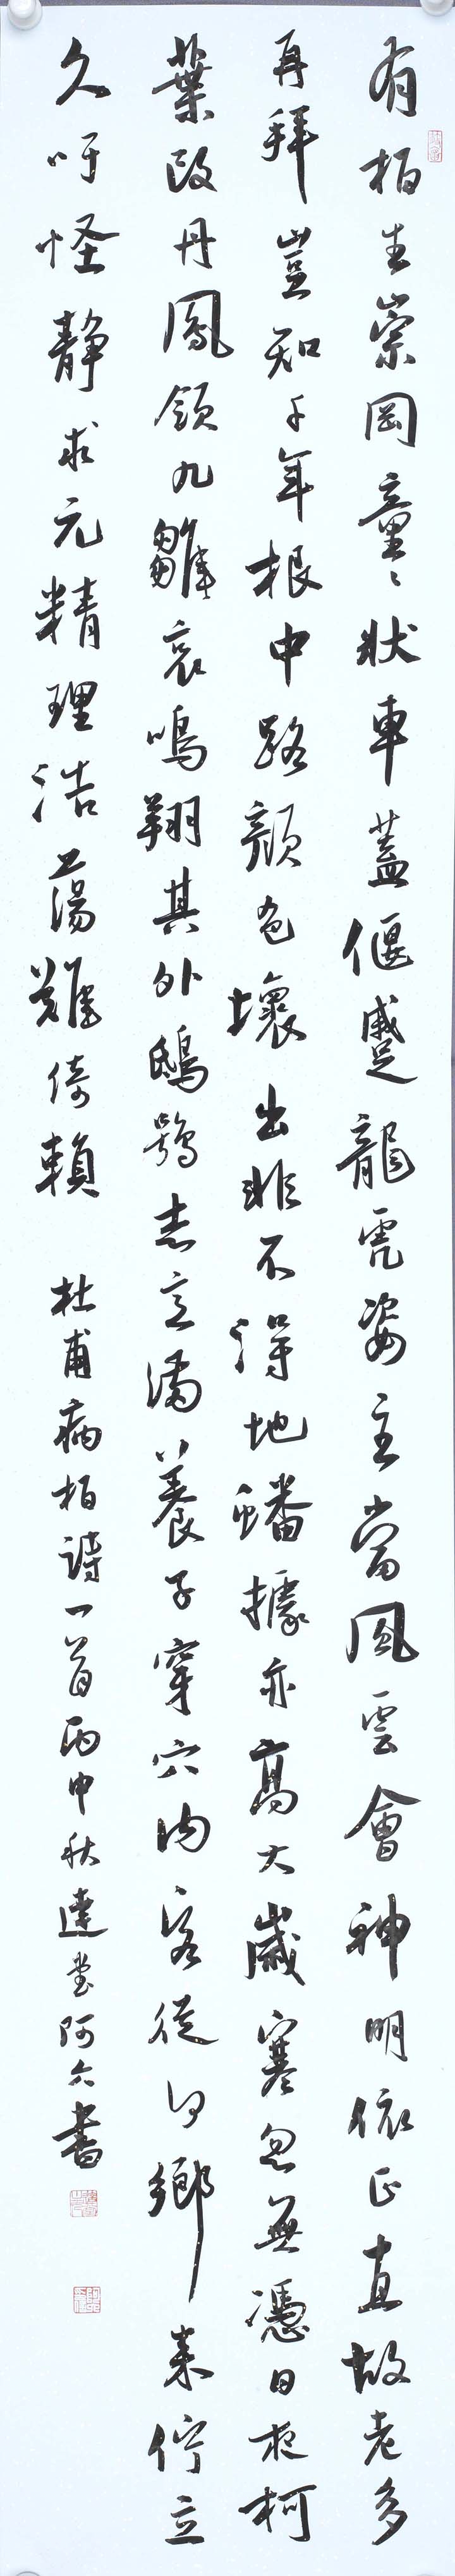 有柏生崇岡童々狀車蓋偃蹙龍虎姿主當風雲會神明依正直故老多
再拜豈知千年根中路顏色壞出非不得地蟠據亦高大歲寒忽無憑日夜柯
葉改丹鳳領九雛哀鳴翔其外鴟鴞志意滿養子穿穴內客從何鄉來佇立
久吁怪靜求元精理浩蕩難倚賴 杜甫病柏詩一首丙申秋達堂阿六書